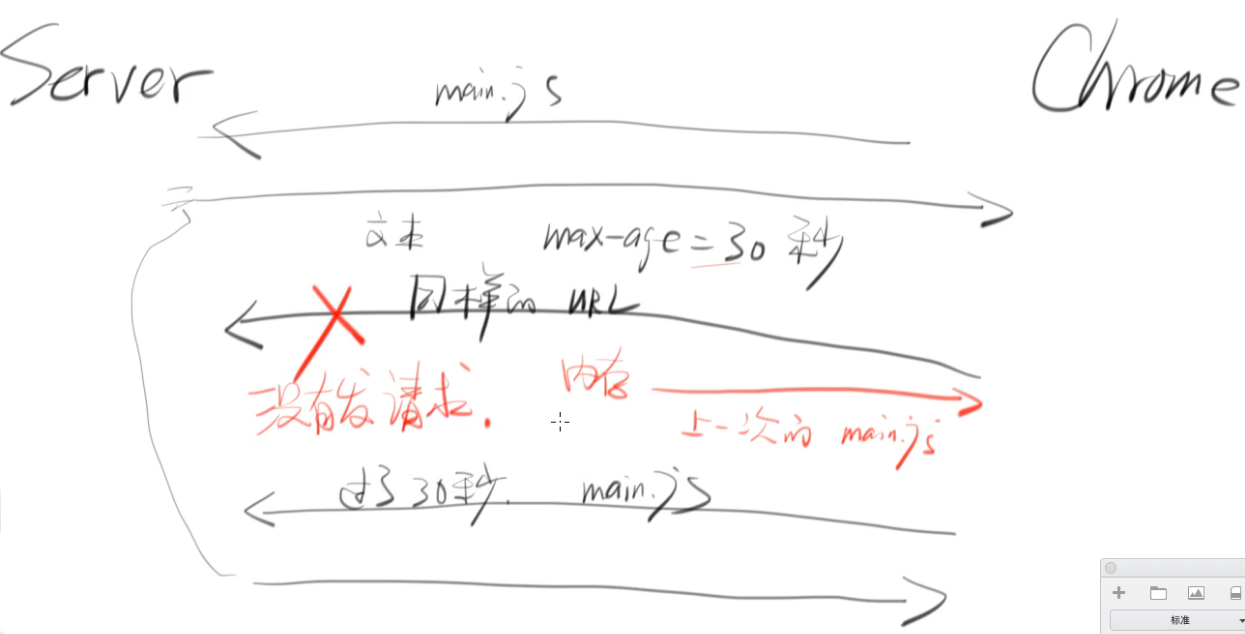 Server
Chrome
main.js
文本 max-age=30 秒
同样的 URL
没有发请求. 内存
上一次的 main.js
过了30秒. main.js
标准